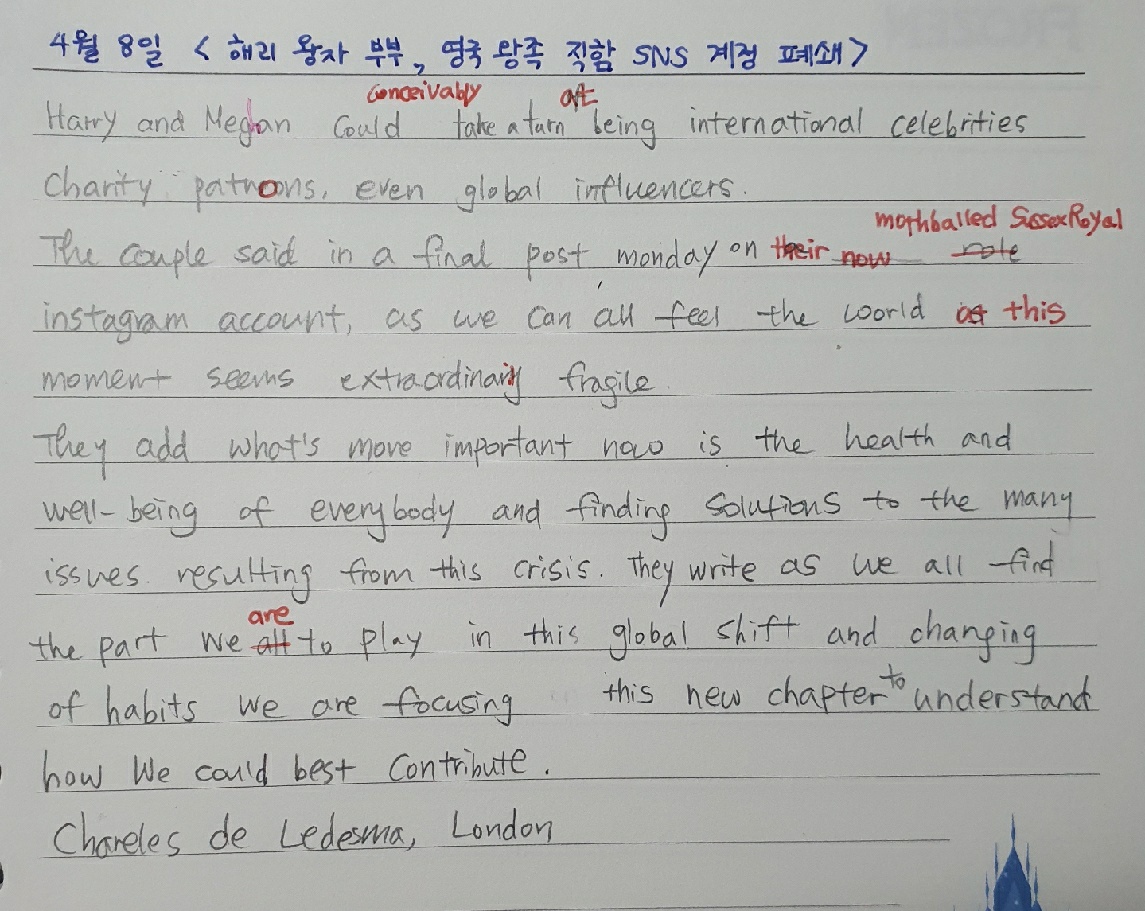 4월 8일 < 해리 왕자 부부, 영국 왕족 직함 SNS 계정 폐쇄 >
conceivably at
Harry and Megan Could take a turn being international celebrities
Charity patroons, even global influencers.
mothballed SussexRoyal
The couple said in a final post monday on their now note
instagram account, as we can all feel the world at this
moment seems extraordinariy fragile
They add what's more important now is the health and
well-being of everybody and finding solutions to the many
issues resulting from this crisis. They write as we all find
are
the part we all to play in this global shift and changing
of habits we are focusing this new chapter to understand
how We could best contribute.
Chareles de Ledesma, London